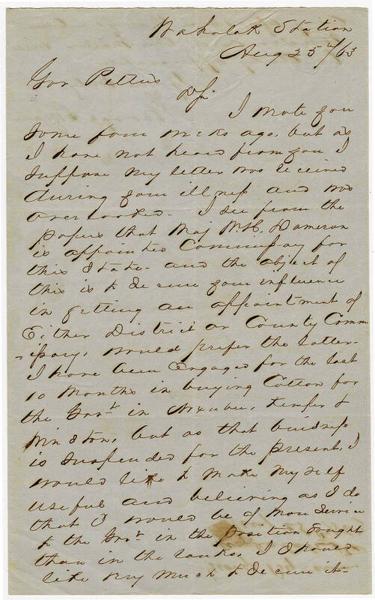 Wahalak Station
Aug 25th/63
Gov Pettus
D Sir
I wrote you
some four weeks ago, but as
I have not heard from you I
suppose my letter was received
during your illness and was
over looked. I see from the
papers that Maj W H Dameron
is appointed Commissary for
this State and the object of
this is to secure your influence
in getting an appointment of
Either District or County Comm
issary, would prefer the latter.
I have been Engaged for the last
10 Months in buying Cotton for
the Govt in Noxubee, Kemper &
Winston, but as that business
is suspended for the present, I
would like to make my self
useful and believing as I do
that I would be of more service
to the Govt in the position sought
than in the ranks, I should
like very much to secure it.